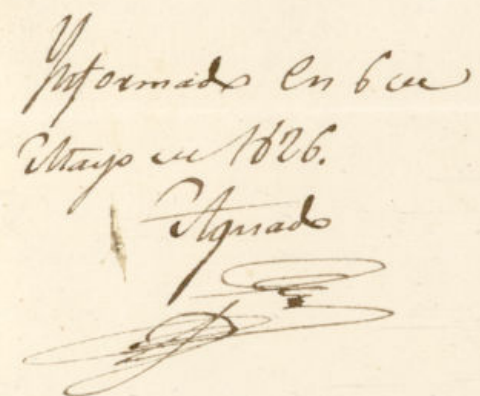 Ynformado en 6 de
Mayo de 1826.
Aguado